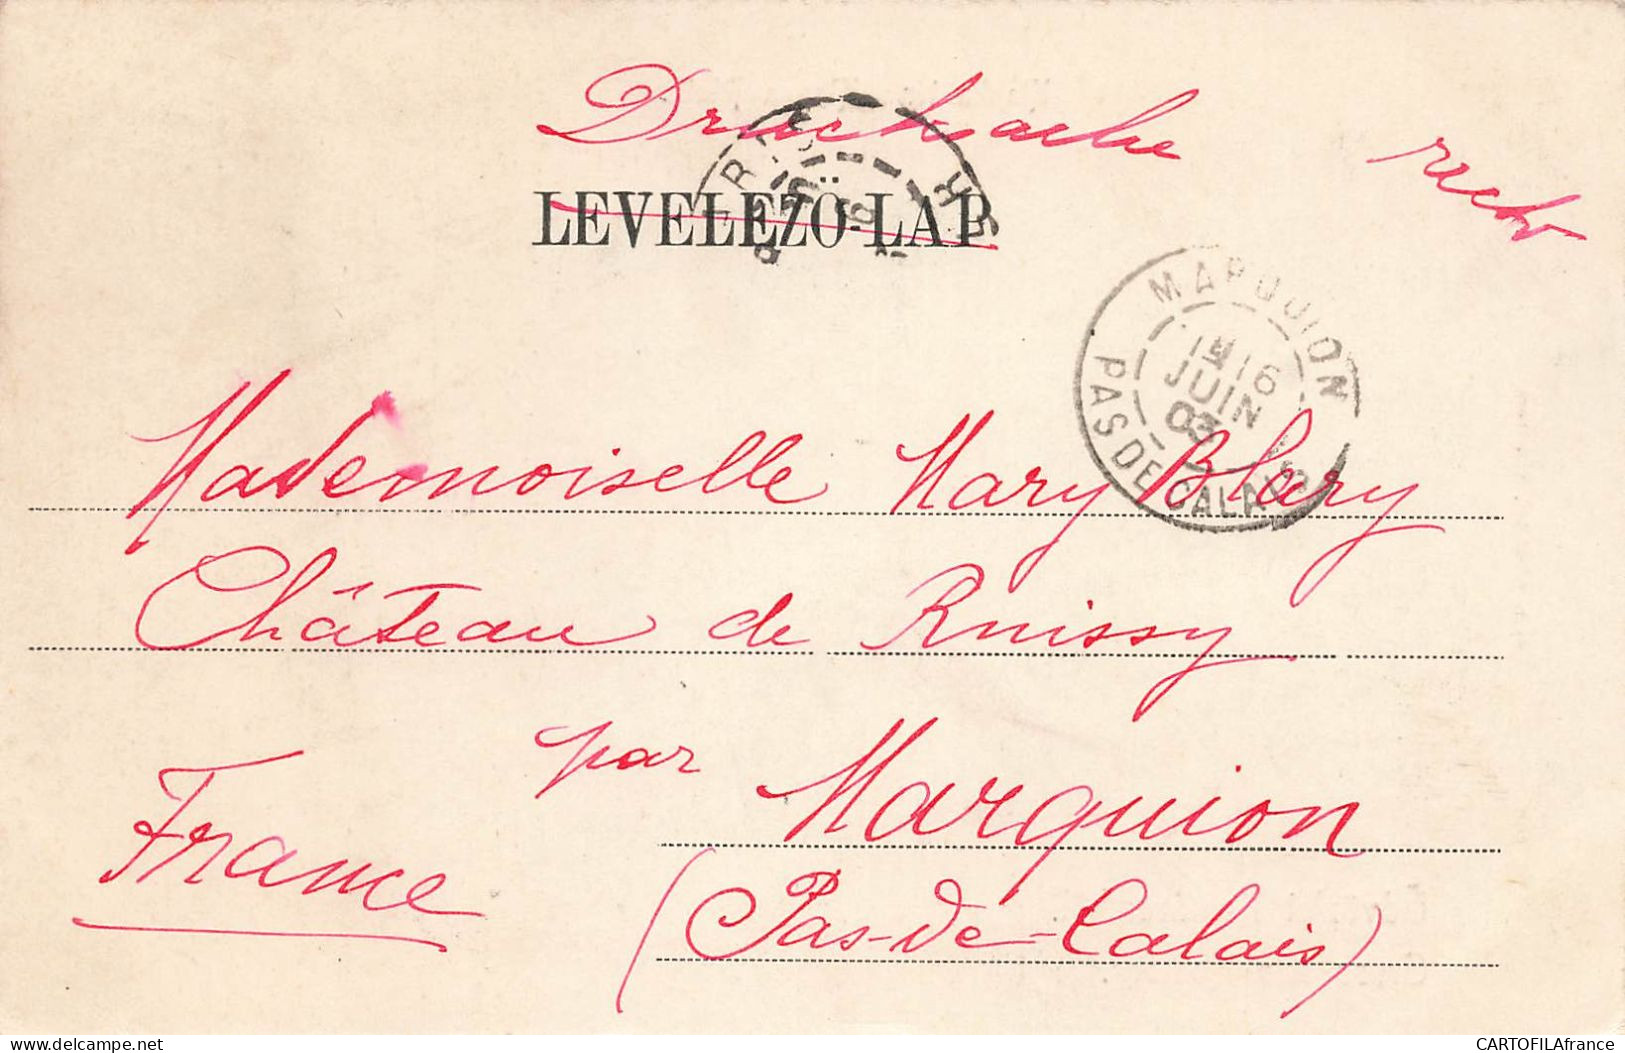 Drucksache
recto
LEVELEZÖ-LAP
MARQUION
16
JUIN
03
PAS DE CALAIS
Mademoiselle Mary Bléry
Château de Ruissy
par Marquion
France
(Pas-de-Calais)
delcampe.net
CARTOFILAfrance